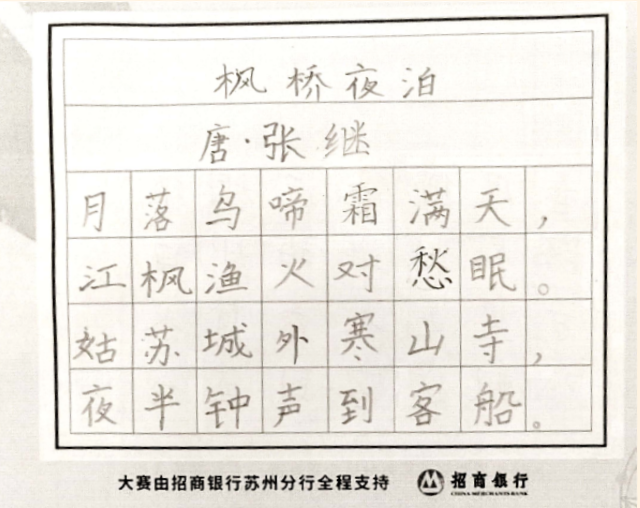 枫桥夜泊
唐·张继
月落乌啼霜满天，
江枫渔火对愁眠。
姑苏城外寒山寺，
夜半钟声到客船。
大赛由招商银行苏州分行全程支持
招商银行
CHINA MERCHANTS BANK